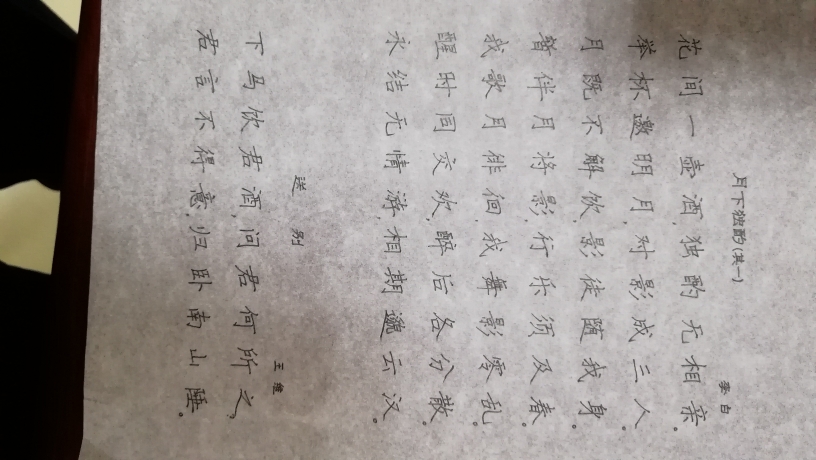 月下独酌(其一)
李白
花间一壶酒,独酌无相亲。
举杯邀明月,对影成三人。
月既不解饮,影徒随我身。
暂伴月将影,行乐须及春。
我歌月徘徊,我舞影零乱。
醒时同交欢,醉后各分散。
永结无情游,相期邈云汉。
送别
王维
下马饮君酒,问君何所之。
君言不得意,归卧南山陲。